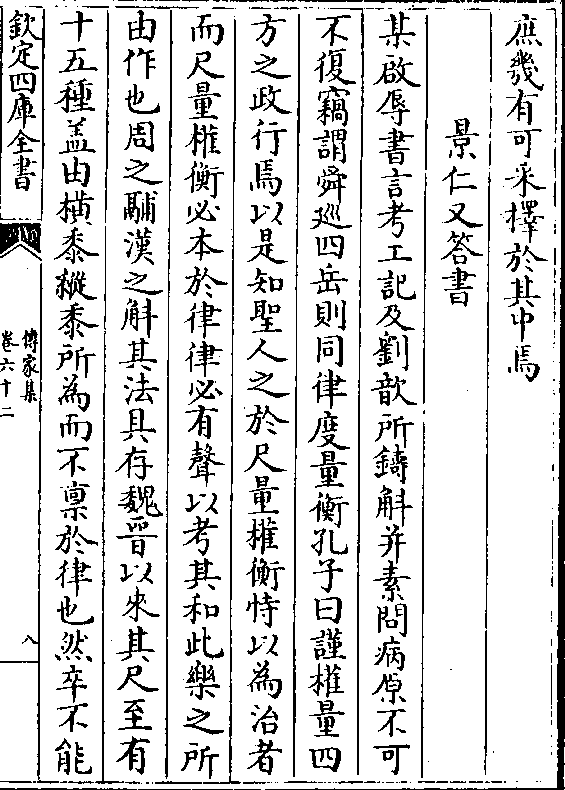 庶幾有可采擇於其中焉
景仁又答書
某啟辱書言考工記及劉歆所鑄斛并素問病原不可
不復竊謂舜廵四岳則同律度量衡孔子曰謹權量四
方之政行焉以是知聖人之於尺量權衡恃以為治者
而尺量權衡必本於律律必有聲以考其和此樂之所
由作也周之鬴漢之斛其法具存魏晉以來其尺至有
十五種盖由橫黍縱黍所為而不禀於律也然卒不能
欽定四庫全書
傳家集
卷六十二
八